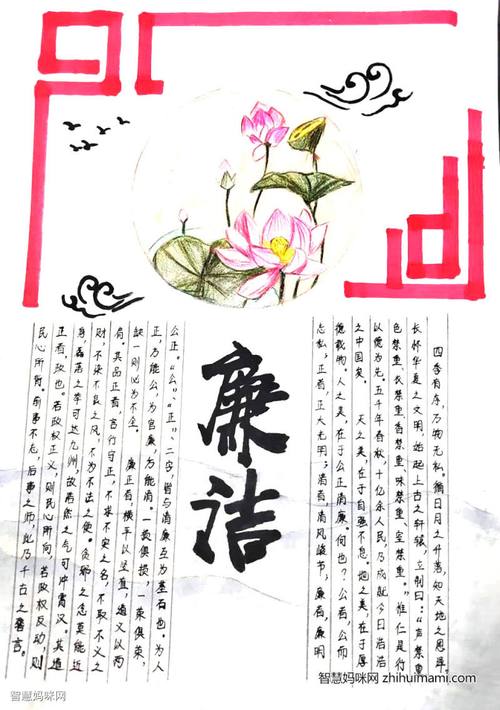 四季有序，万物无私。循日月之升落，知天地之恩泽。
长怀华夏之文明，始起上古之轩辕，立制曰：“声禁重，
色禁重、衣禁重、香禁重、味禁重、室禁重。”惟仁是行
以俭为先。五千年春秋，十亿余人民，乃成就今日浩浩
之中国矣。天之美，在于自强不息。地之美，在于厚
德载物。人之美，在于公正清廉。何也？公者，公而
忘私；正者，正大光明；清者，清风峻节，廉者，廉明
廉洁
公正。“公”、“正”、二字，皆与清廉互为基石也。为人
正，方能公，为官廉，方能清。一损俱损，一荣俱荣，
缺一则必为不全。廉正者，横平以竖直，通文以两
句。其品正者，言行守正，不求不安之名，不取不义之
财，不染不良之风，不为不法之使。贪邪之念莫能近
身，磊落之幸可达九州，故君然之气可冲霄汉。其道
正者，政也。若政权正义，则民心所向，若政权反动，则
民心所背。前事不忘，后事之师，此乃千古之警言。
智慧妈咪网 zhihuimami.com
智慧妈咪网